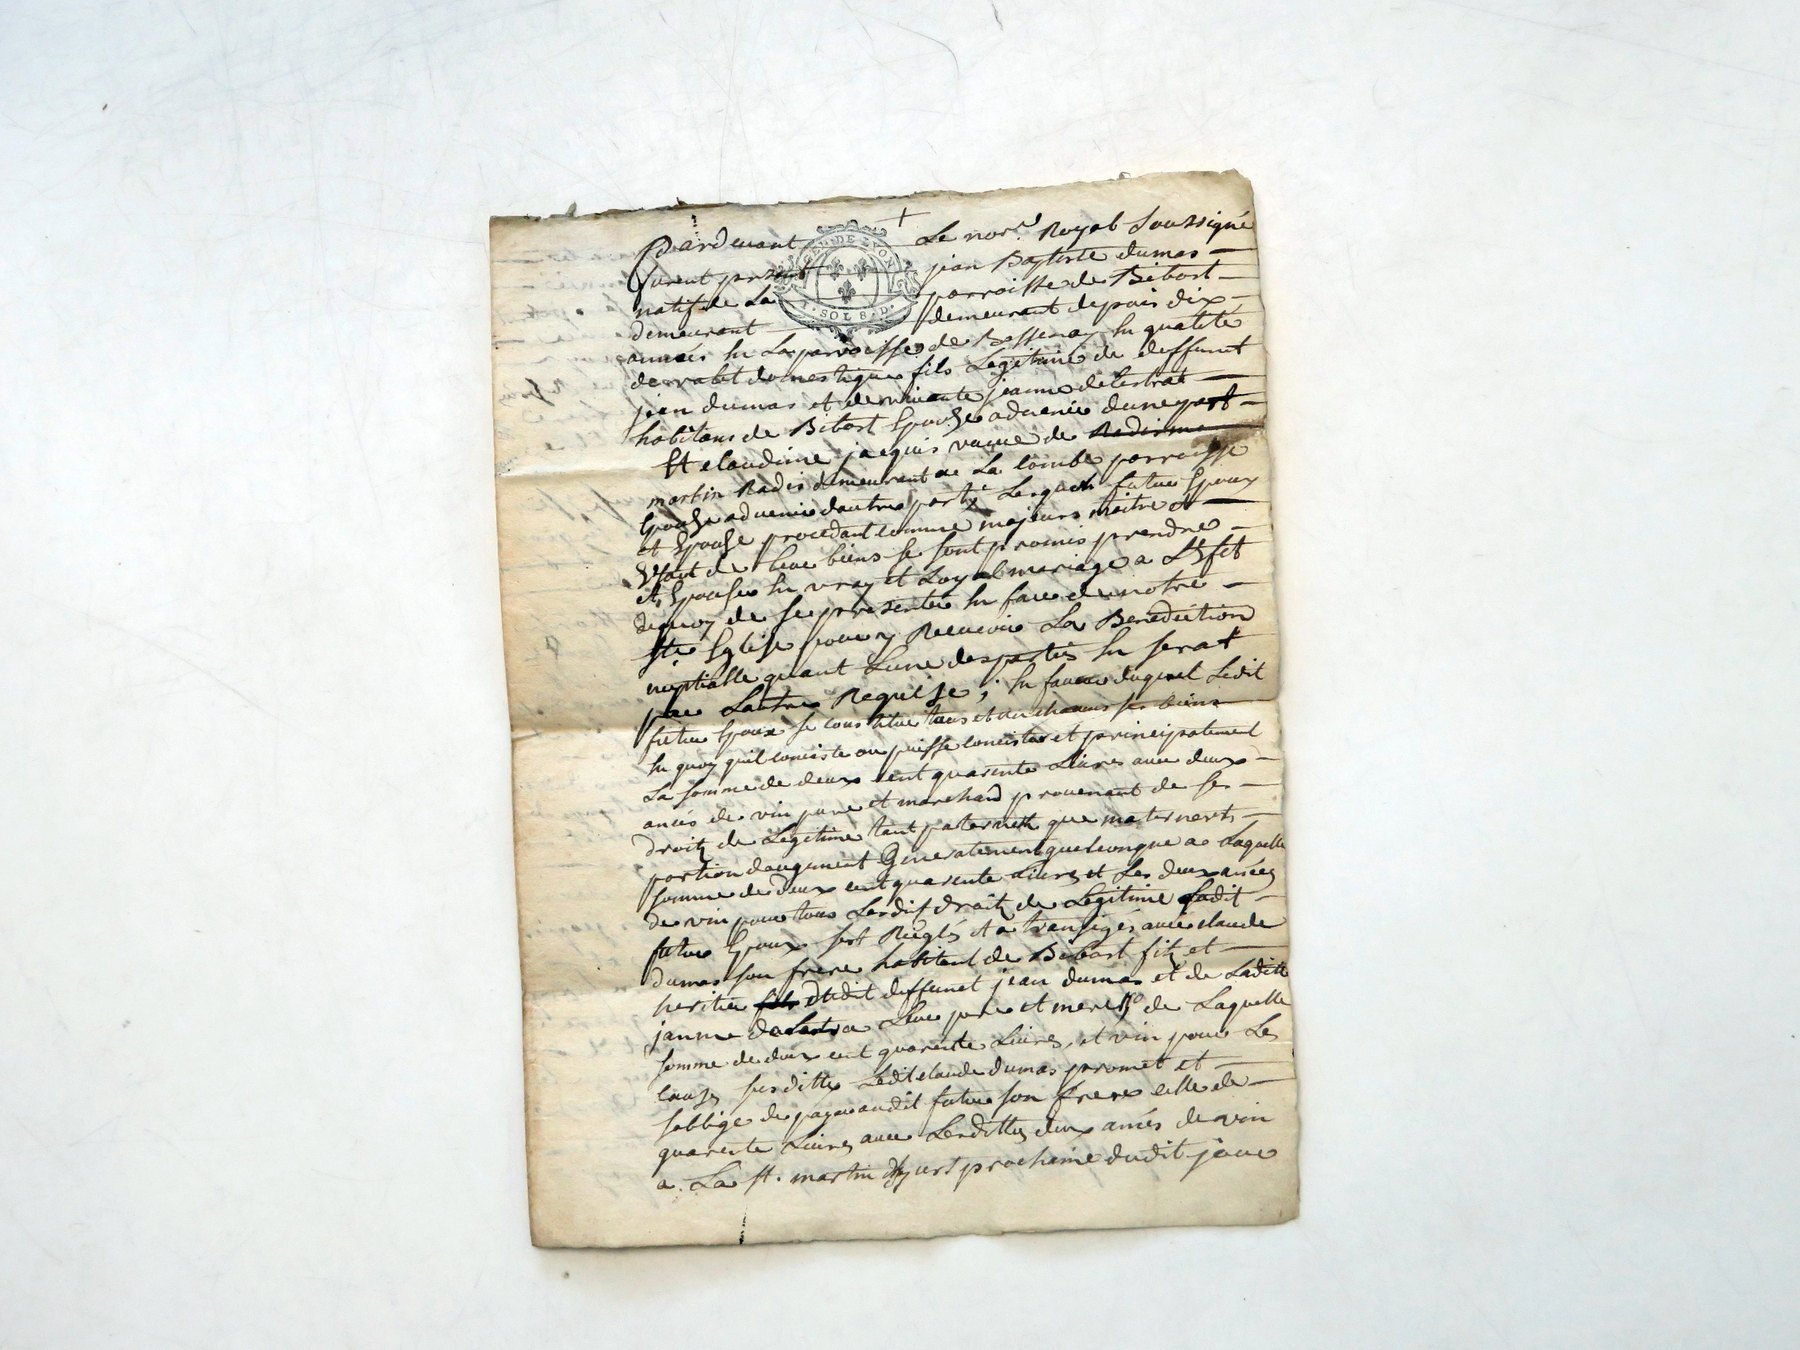 Pardevant Le nore. Royal Soussigné
furent present jean Baptiste dumas
natif de La parroisse de Bibost
demeurant demeurant depuis dix
années En La parroisse de Bessenay En qualité
de vallet domestique fils Legitime de deffunct
jean dumas et de vivante jeanne delestrat
habitans de Bibost Epouse advenir dune part
Et claudine jacquis vueve de
martin Radis demeurant a La combe parroisse
Epouse advenir dautre part Lesquels futur Epoux
et Epouse procedant comme majeurs maitre et
Usant de leur biens se sont promis prendre
et Epouser En vray et Loyal mariage a L'Efet
dequoy de se presenter En face de notre
ste Eglise pour y Recevoir La Benediction
nuptialle quant Lune des parties En serat
par Lautre Requise ; En faveur duquel Ledit
futur Epoux se constitue tous et un chacuns ses biens
En quoy quil consiste ou puisse consister et principalement
La somme de deux cent quarente Livres avec deux
anées de vin pure et marchand provenant de ses
droitz de Legitime tant paternels que maternels
portion daugment Generalement quelconque a Laquelle
somme de deux cent quarente Livres et Les deux anées
de vin pour tous Lesdits droitz de Legitime Ledit
futur Epoux sest Reglés et a transigés avec claude
dumas son frere habitant de Bibost fils et
heritier dudit deffunct jean dumas et de Laditte
janne delestra Leur pere et mere de Laquelle
somme de deux cent quarente Livres, et vin pour Les
causes susditte Ledit claude dumas promet et
soblige de payer audit futur son frere celle de
quarente Livres avec Lesdittes deux anées de vin
a La st. martin dhyvert prochaine dudit jour
SOLS 8 D